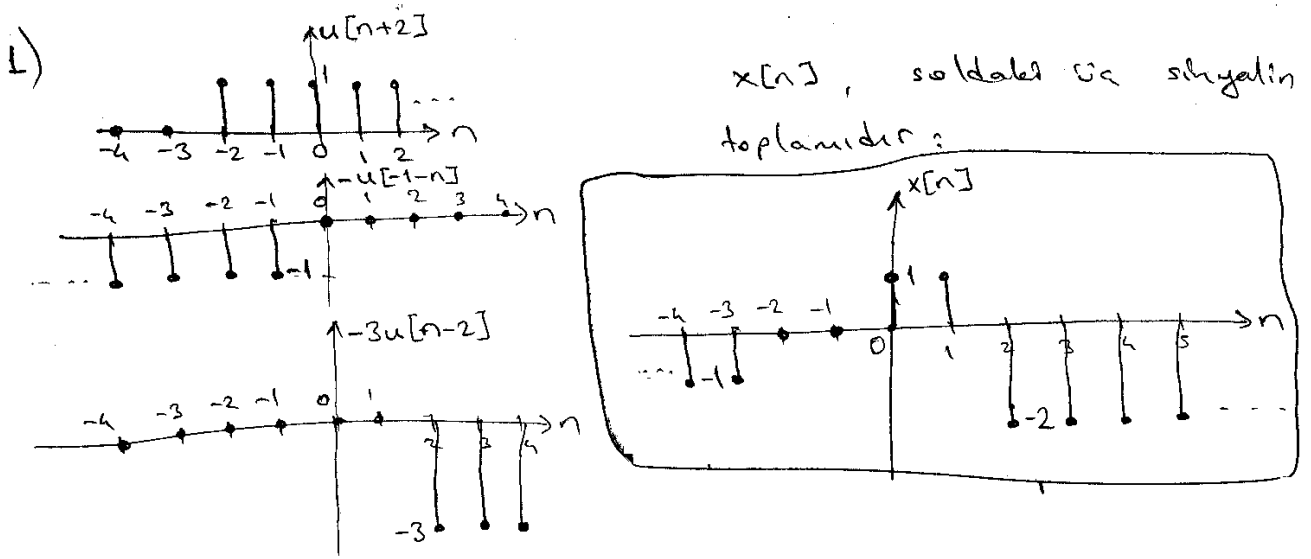 1)
u[n+2]
1
....
-4 -3 -2 -1 0 1 2 n
-u[-1-n]
-4 -3 -2 -1 0 1 2 3 4 n
..... -1
-3u[n-2]
-4 -3 -2 -1 0 1 2 3 4 n
-3
x[n], soldaki üç sinyalin
toplamıdır:
x[n]
1
-4 -3 -2 -1 0 1 2 3 4 5 n
.... -1
-2 ....